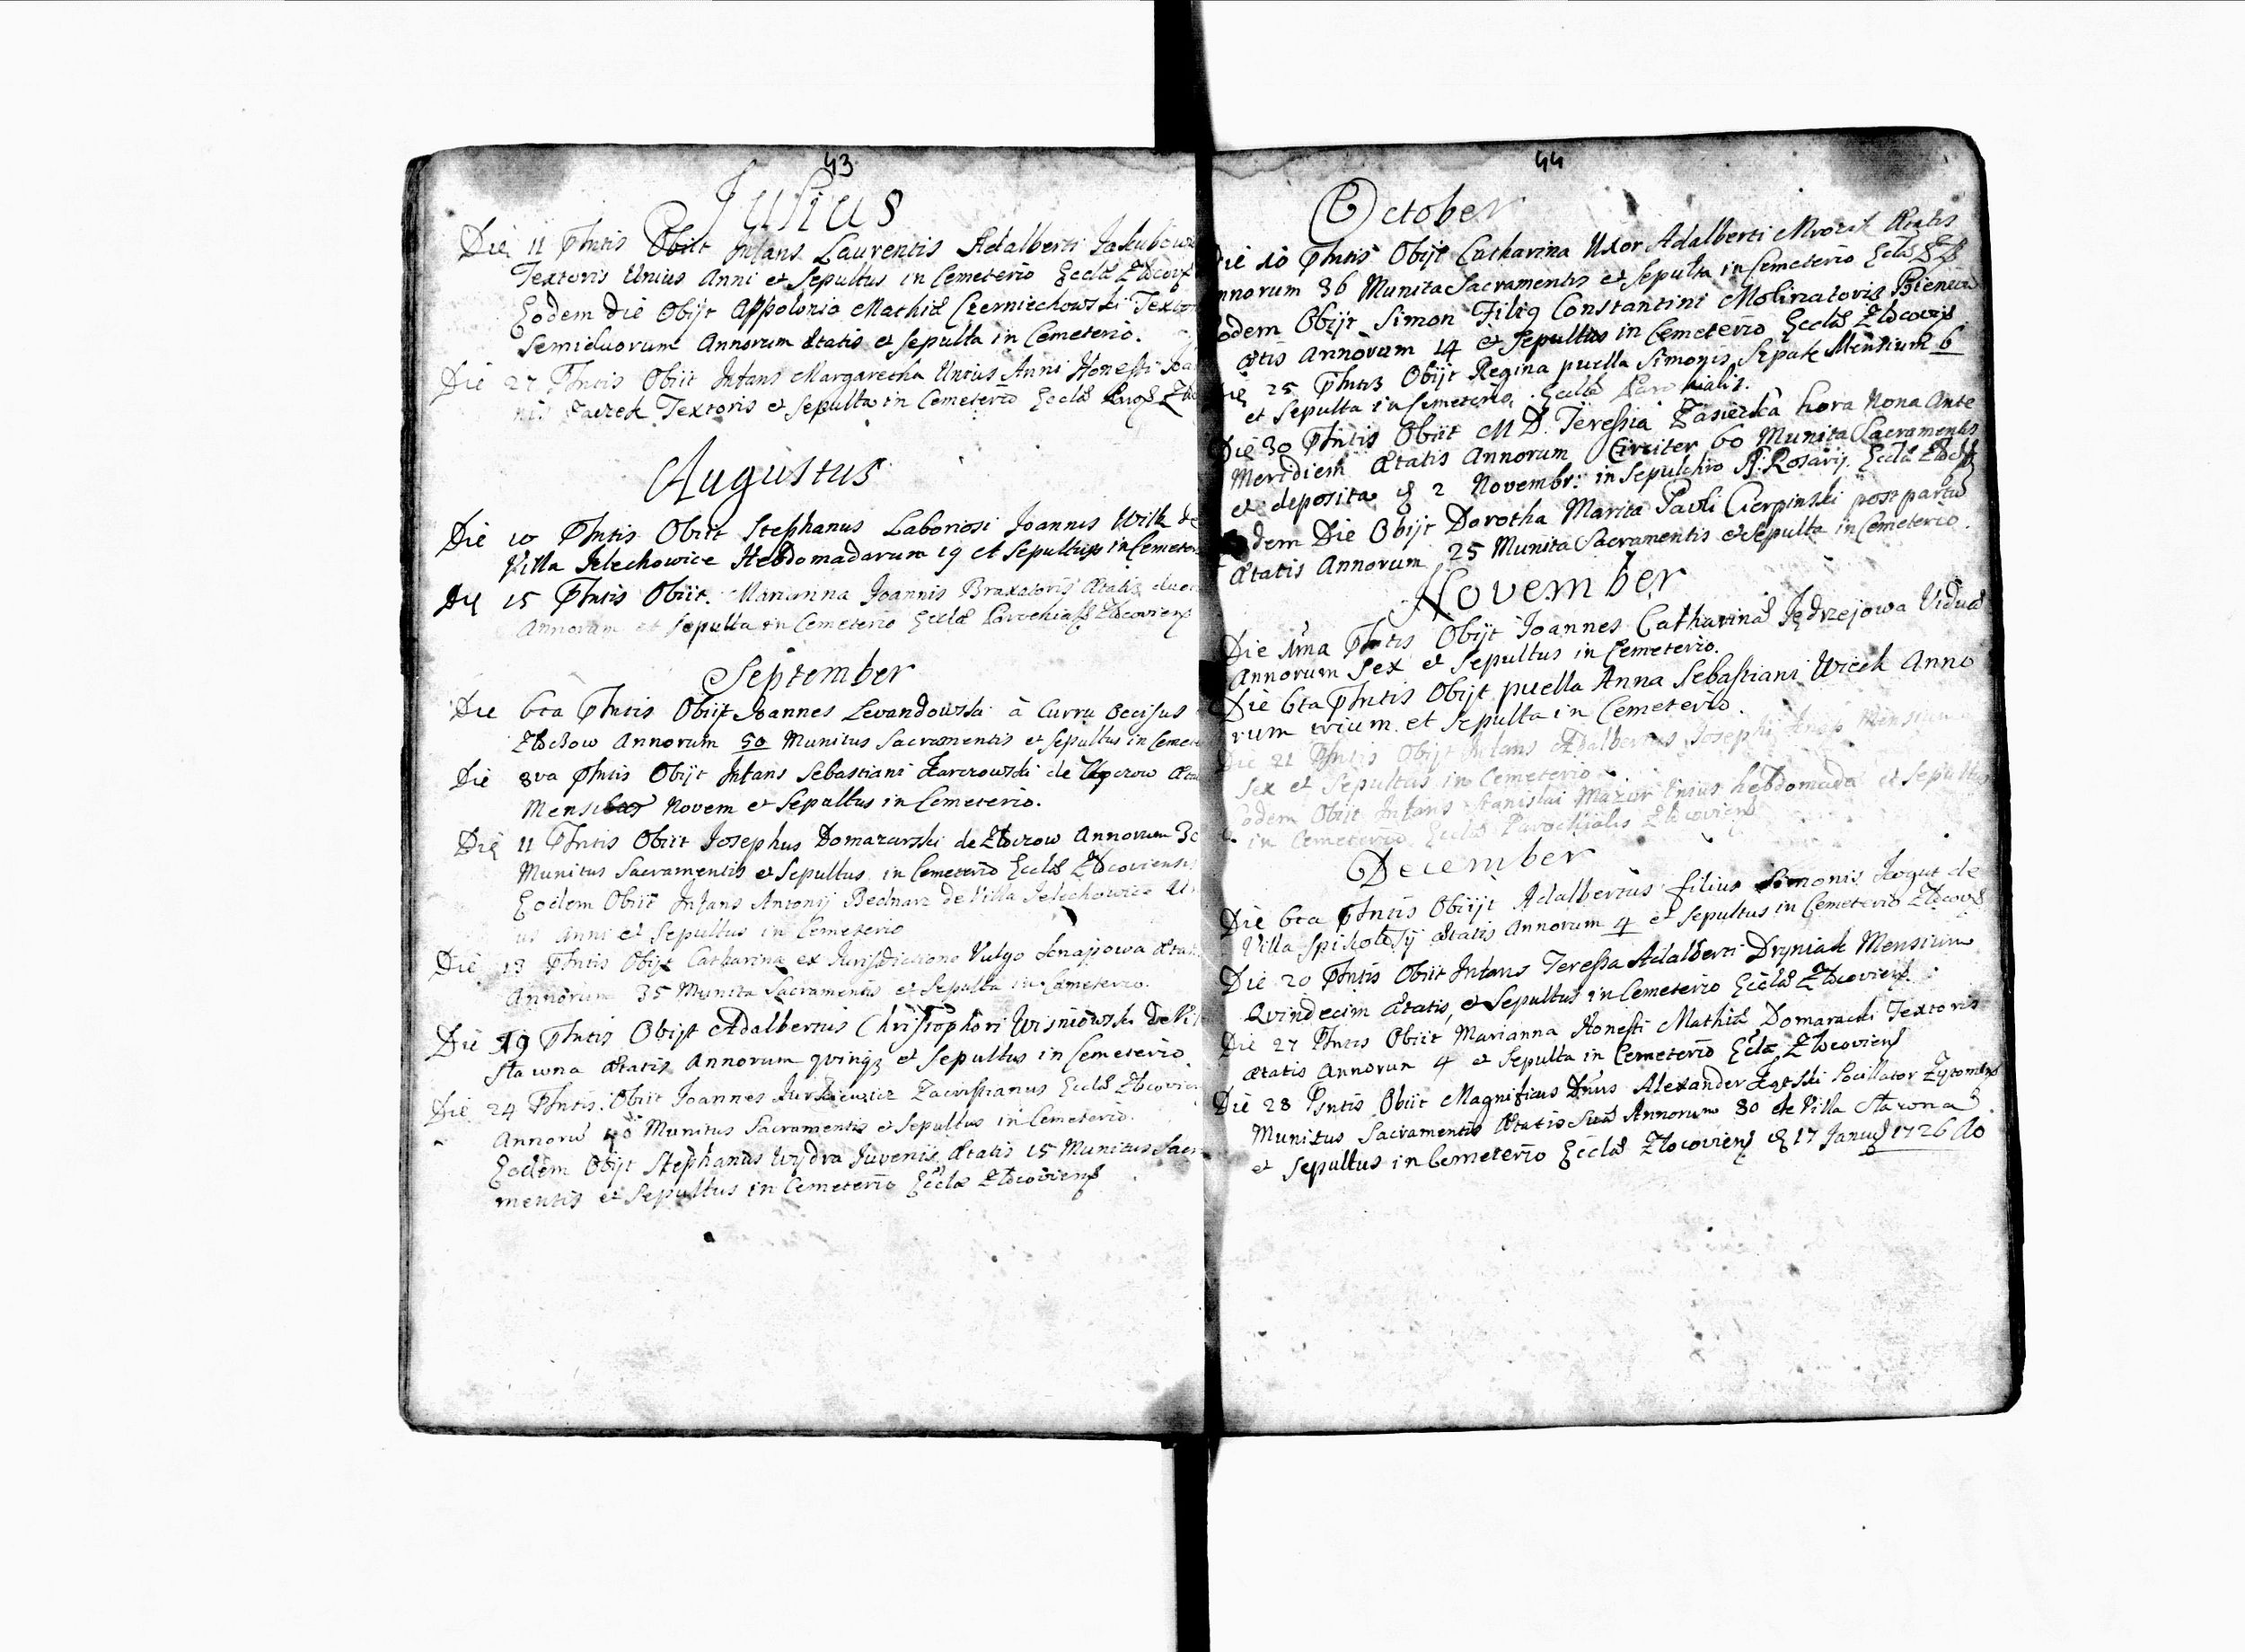 43
Julius
Die 11 Phntis Obiit Infans Laurentis Adalberti Jakubow
Textoris Unius Anni et Sepultus in Cemeterio Eccłæ
Eodem die Obijt Appolonia Mathiæ Czerniechowski Textor
Semiduorum Annorum ætatis et sepulta in Cemeterio.
Die 27 Phntis Obiit Infans Margaretha Unius Anni Honesti Joa
nis Textoris et sepulta in Cemeterio Eccłæ
Augustus
Die 10 Phntis Obiit Stephanus Laboriosi Joannis Wilk de
Villa Jelechowice Hebdomadarum 19 et Sepultus in Cemeter
Die 15 Phntis Obiit. Marianna Joannis Braxatoris Ætatis duo
Annorum et sepulta in Cemeterio Eccłæ
September
Die 6ta Phntis Obijt Joannes Levandowski à Curru Occisus
Złoczow Annorum 50 Munitus Sacramentis et Sepultus in Cemete
Die 8va Phntis Obijt Infans Sebastiani Karczowski de
Novem et Sepultus in Cemeterio.
Die 11 Phntis Obiit Josephus Domazarski de Złoczow Annorum 30
Munitus Sacramentis et Sepultus in Cemeterio Eccłæ Złocoviensis
Eodem Obiit Infans Antonij Bednarz de Villa Jelechowice Uni
us Anni et Sepultus in Cemeterio
Die 13 Phntis Obijt Catharina ex Jurisdictione Vulgo
Annorum 35 Munita Sacramentis et Sepulta in Cemeterio.
Die 19 Phntis Obijt Adalbertus Christophori Wisniowski de Vi
Annorum et Sepultus in Cemeterio
Die 24 Phntis Obiit Joannes Jurkiewicz Zacristianus Eccłæ
Munitus Sacramentis et Sepultus in Cemeterio.
Eodem Obijt Stephanus Wydra Juvenis Ætatis 15 Munitus Sacra
mentis et Sepultus in Cemeterio Eccłæ Złocoviens
44
October
Die 10 Phntis Obijt Catharina Uxor Adalberti Mrozek Ætatis
nnorum 36 Munita Sacramentis et Sepulta in Cemeterio
odem Obijt Simon Constantini Molinatoris
ætis Annorum 14 et Sepultus in Cemeterio Eccłæ
Die 25 Phntis Obijt Regina puella Simonis Mensium 6
et Sepulta in Cemeterio. Eccłæ
Die 30 Phntis Obiit M D. Teressia Zasiecka hora Nona Ante
Meridiem Ætatis Annorum Circiter 60 Munita Sacramentis
et deposita 2 Novembr: in Sepulchro Rosarij. Eccłæ
dem Die Obijt Dorotha Marita Pavli Cierpinski post partu
Ætatis Annorum 25 Munita Sacramentis et Sepulta in Cemeterio.
November
Die 1ma Phntis Obijt Joannes Catharinæ Jędrzejowa Viduæ
Annorum Sex et Sepultus in Cemeterio.
Die 6ta Phntis Obijt puella Anna Sebastiani Wicek Anno
rum trium et Sepulta in Cemeterio.
Die 21 Phntis Obijt Infans Adalbertus Josephi Mensium
Sex et Sepultus in Cemeterio
odem Obiit Infans Stanislai Mazur Unius hebdomada et Sepultus
in Cemeterio Eccłæ Parochialis
December
Die 6ta Phntis Obiijt Adalbertus filius Simonis Kogut de
Villa ætatis Annorum 4 et Sepultus in Cemeterio
Die 20 Phntis Obiit Infans Teressa Adalberti Dryniak Mensium
Qvindecim Ætatis, et Sepultus in Cemeterio Eccłæ Złocoviens.
Die 27 Phntis Obiit Marianna Honesti Mathiæ Domaracki Textoris
Ætatis Annorum 4 et Sepulta in Cemeterio Eccłæ Złocoviens
Die 28 Phntis Obiit Magnificus Dnus Alexander Pocillator
Munitus Sacramentis Ætatis Suæ Annorum 80 de Villa
et Sepultus in Cemeterio Eccłæ Złocoviens 17 1726